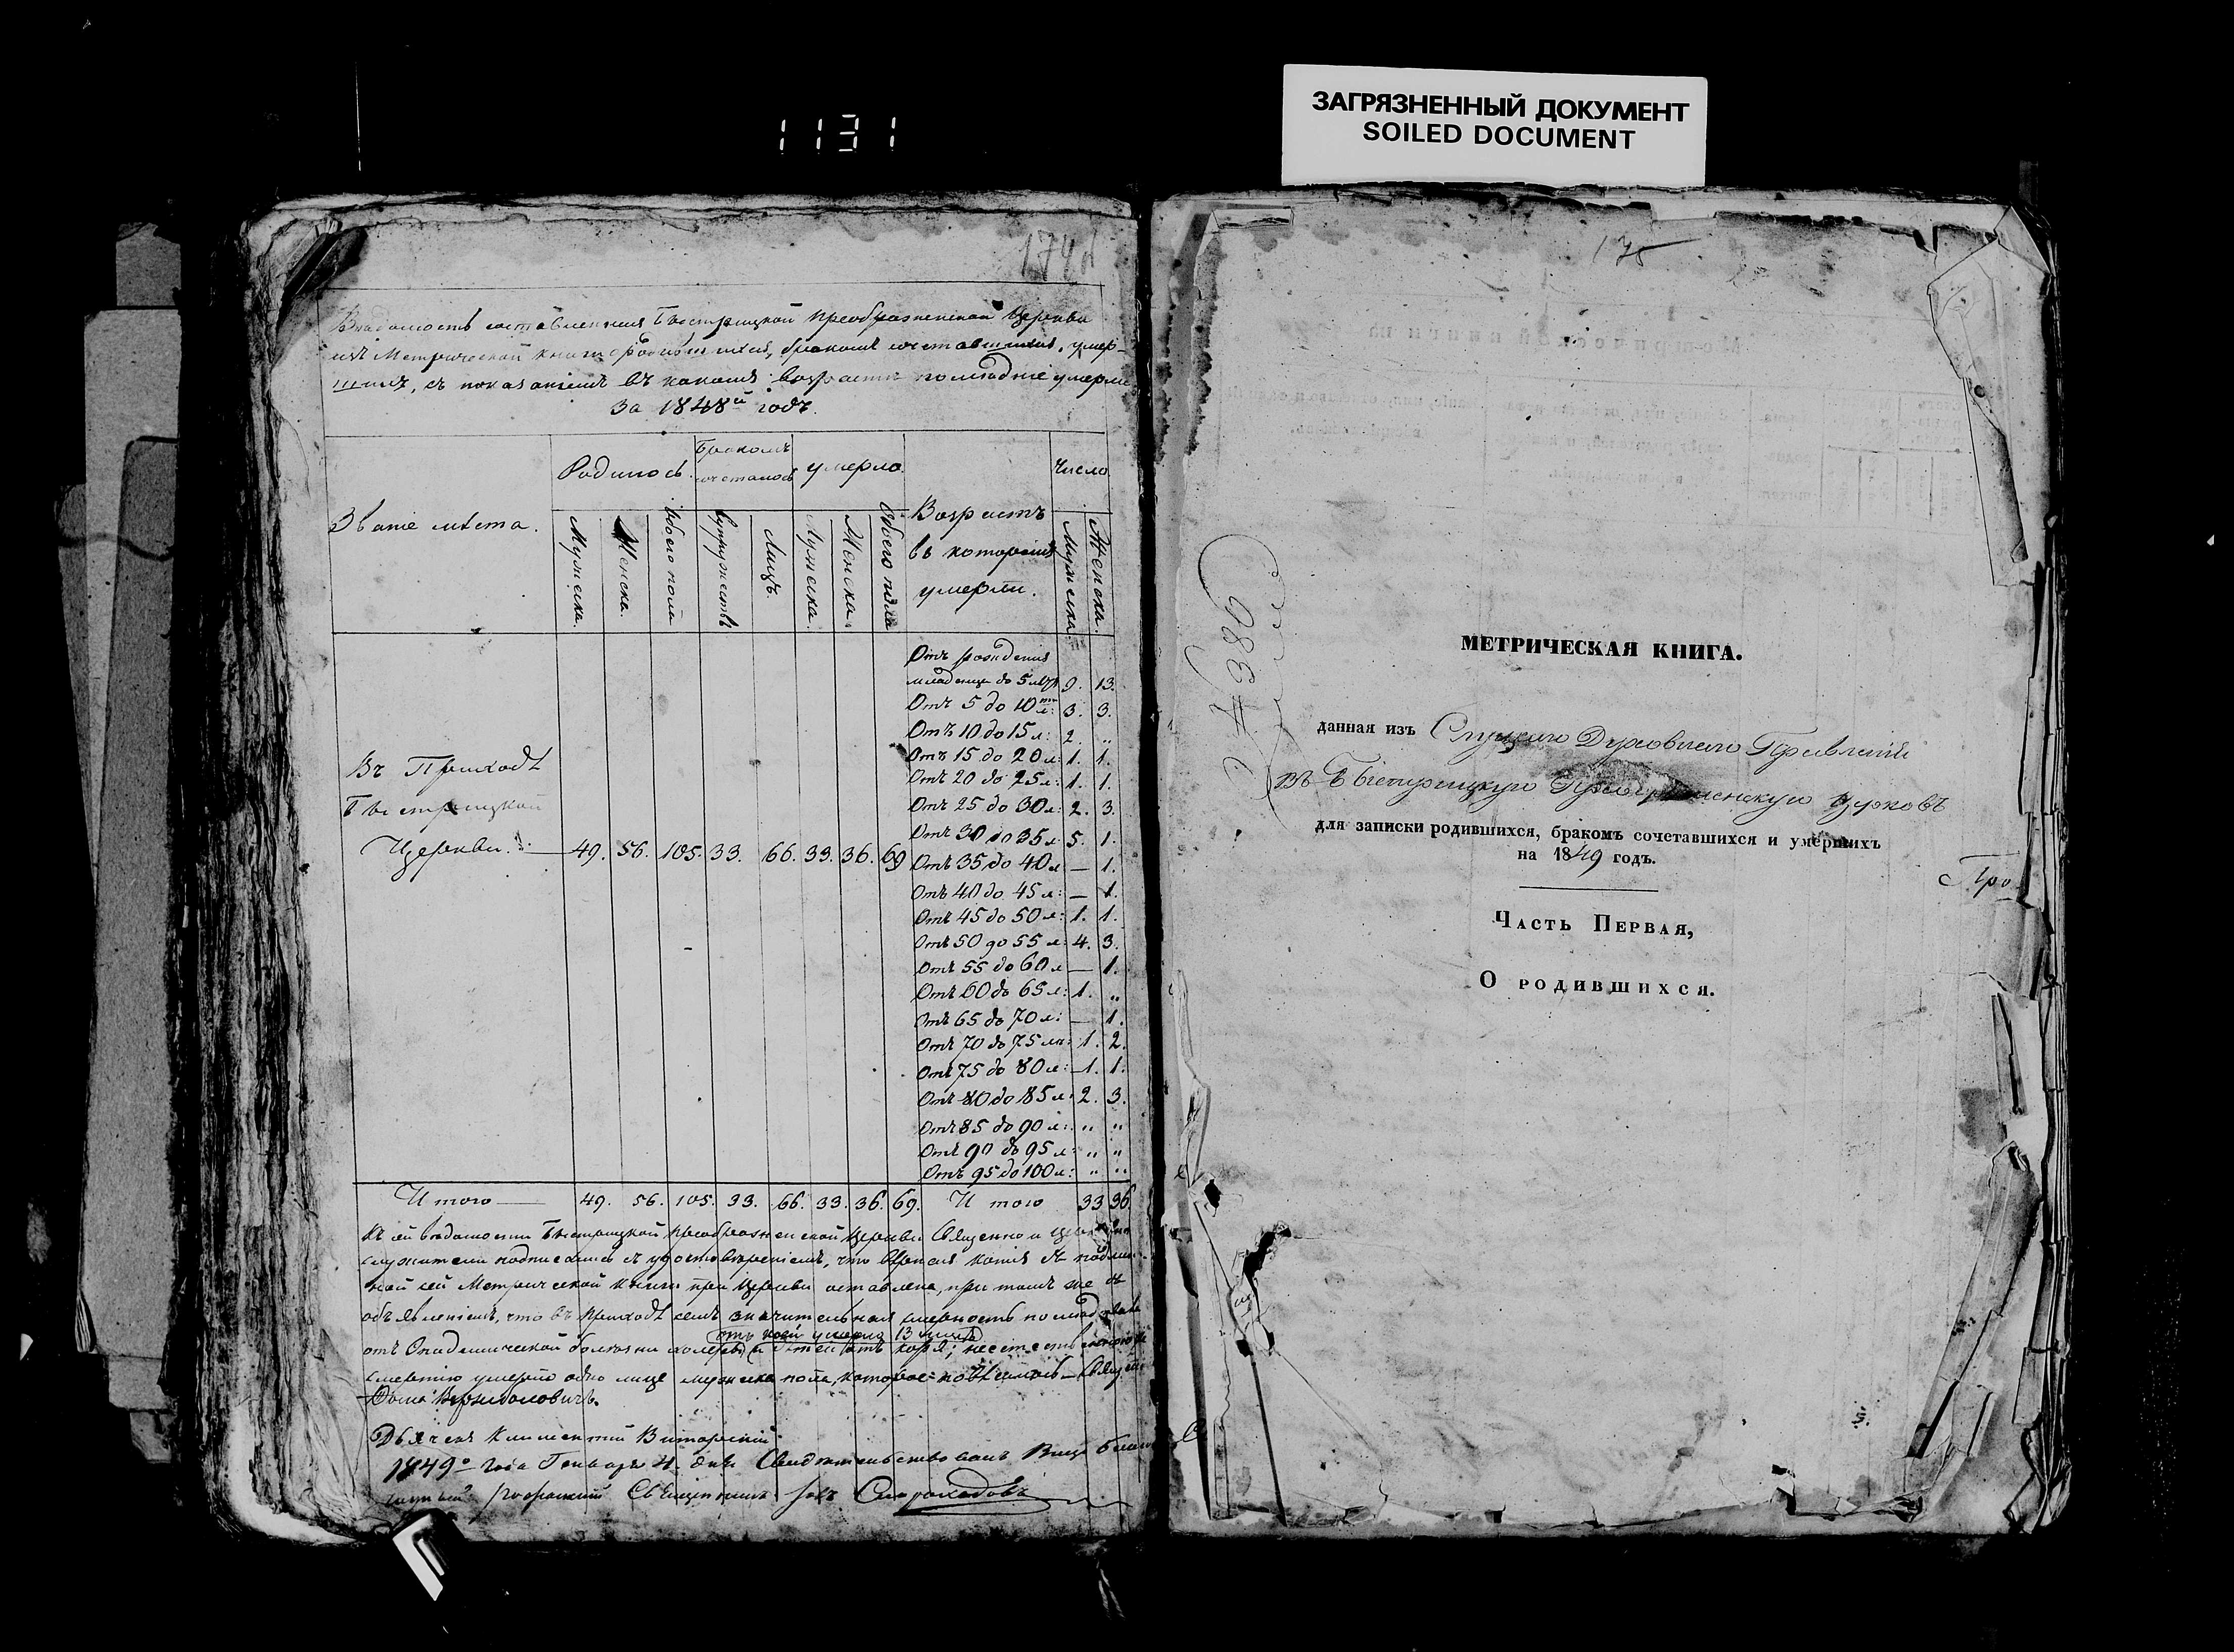 1131
ЗАГРЯЗНЕННЫЙ ДОКУМЕНТ
SOILED DOCUMENT
174
Вѣдомость составленная Быстрицкой Преображенской Церкви
изъ Метрической книги о родившихся, бракомъ сочетавшихся, умер-
шихъ, съ показаніемъ въ какомъ возрастѣ послѣдніе умерли
За 1848й годъ.
Званіе мѣста.
Родилось.
Бракомъ сочеталось
умерло.
Возрастъ въ которомъ умерли.
Число
Мужеска. Женска. Обоего пола Супружествъ Лицъ. Мужеска. Женска. Обоего пола Мужеска. Женска.
Отъ рожденія
младенца до 5 9. 13.
Отъ 5 до 10 л: 3. 3.
Отъ 10 до 15 л: 2. „
Отъ 15 до 20 л: 1. 1.
Отъ 20 до 25 л: 1. 1.
Отъ 25 до 30 л: 2. 3.
Отъ 30 до 35 л 5. 1.
Отъ 35 до 40 л — 1.
Отъ 40 до 45 л: — 1.
Отъ 45 до 50 л: 1. 1.
Отъ 50 до 55 л: 4. 3.
Отъ 55 до 60 л — 1.
Отъ 60 до 65 л: 1. „
Отъ 65 до 70 л: — 1.
Отъ 70 до 75 1. 2.
Отъ 75 до 80 л: 1. 1.
Отъ 80 до 85 л: 2. 3.
Отъ 85 до 90 л: „ „
Отъ 90 до 95 л: „ „
Отъ 95 до 100 л: „ „
Въ Приходѣ
Быстрицкой
Церкви. 49. 56. 105. 33. 66. 33. 36. 69
Итого 49. 56. 105. 33. 66. 33. 36. 69. Итого 33 36
Къ сей вѣдомости Быстрицкой Преображенской Церкви Священно и
служители подписались съ удостовѣреніемъ, что вѣрная копія съ
ной сей Метрической книги при Церкви оставлена, при томъ же съ
объявленіемъ, что въ Приходѣ семъ значительная смертность
отъ коей умерло 13
отъ Эпидемической болѣзни холеры и дѣтей отъ кори;
смертію умерло одно лице мужеска пола, которое
Дьячекъ Климентий
1849го Года Генваря 4. дня Свидѣтельствовалъ Вице
Священникъ
175
№ 386
МЕТРИЧЕСКАЯ КНИГА.
данная изъ Слуцкаго Духовнаго Правленія
въ Быстрицкую Преображенскую церковь
для записки родившихся, бракомъ сочетавшихся и умершихъ
на 1849 годъ.
Часть Первая,
О родившихся.
Про